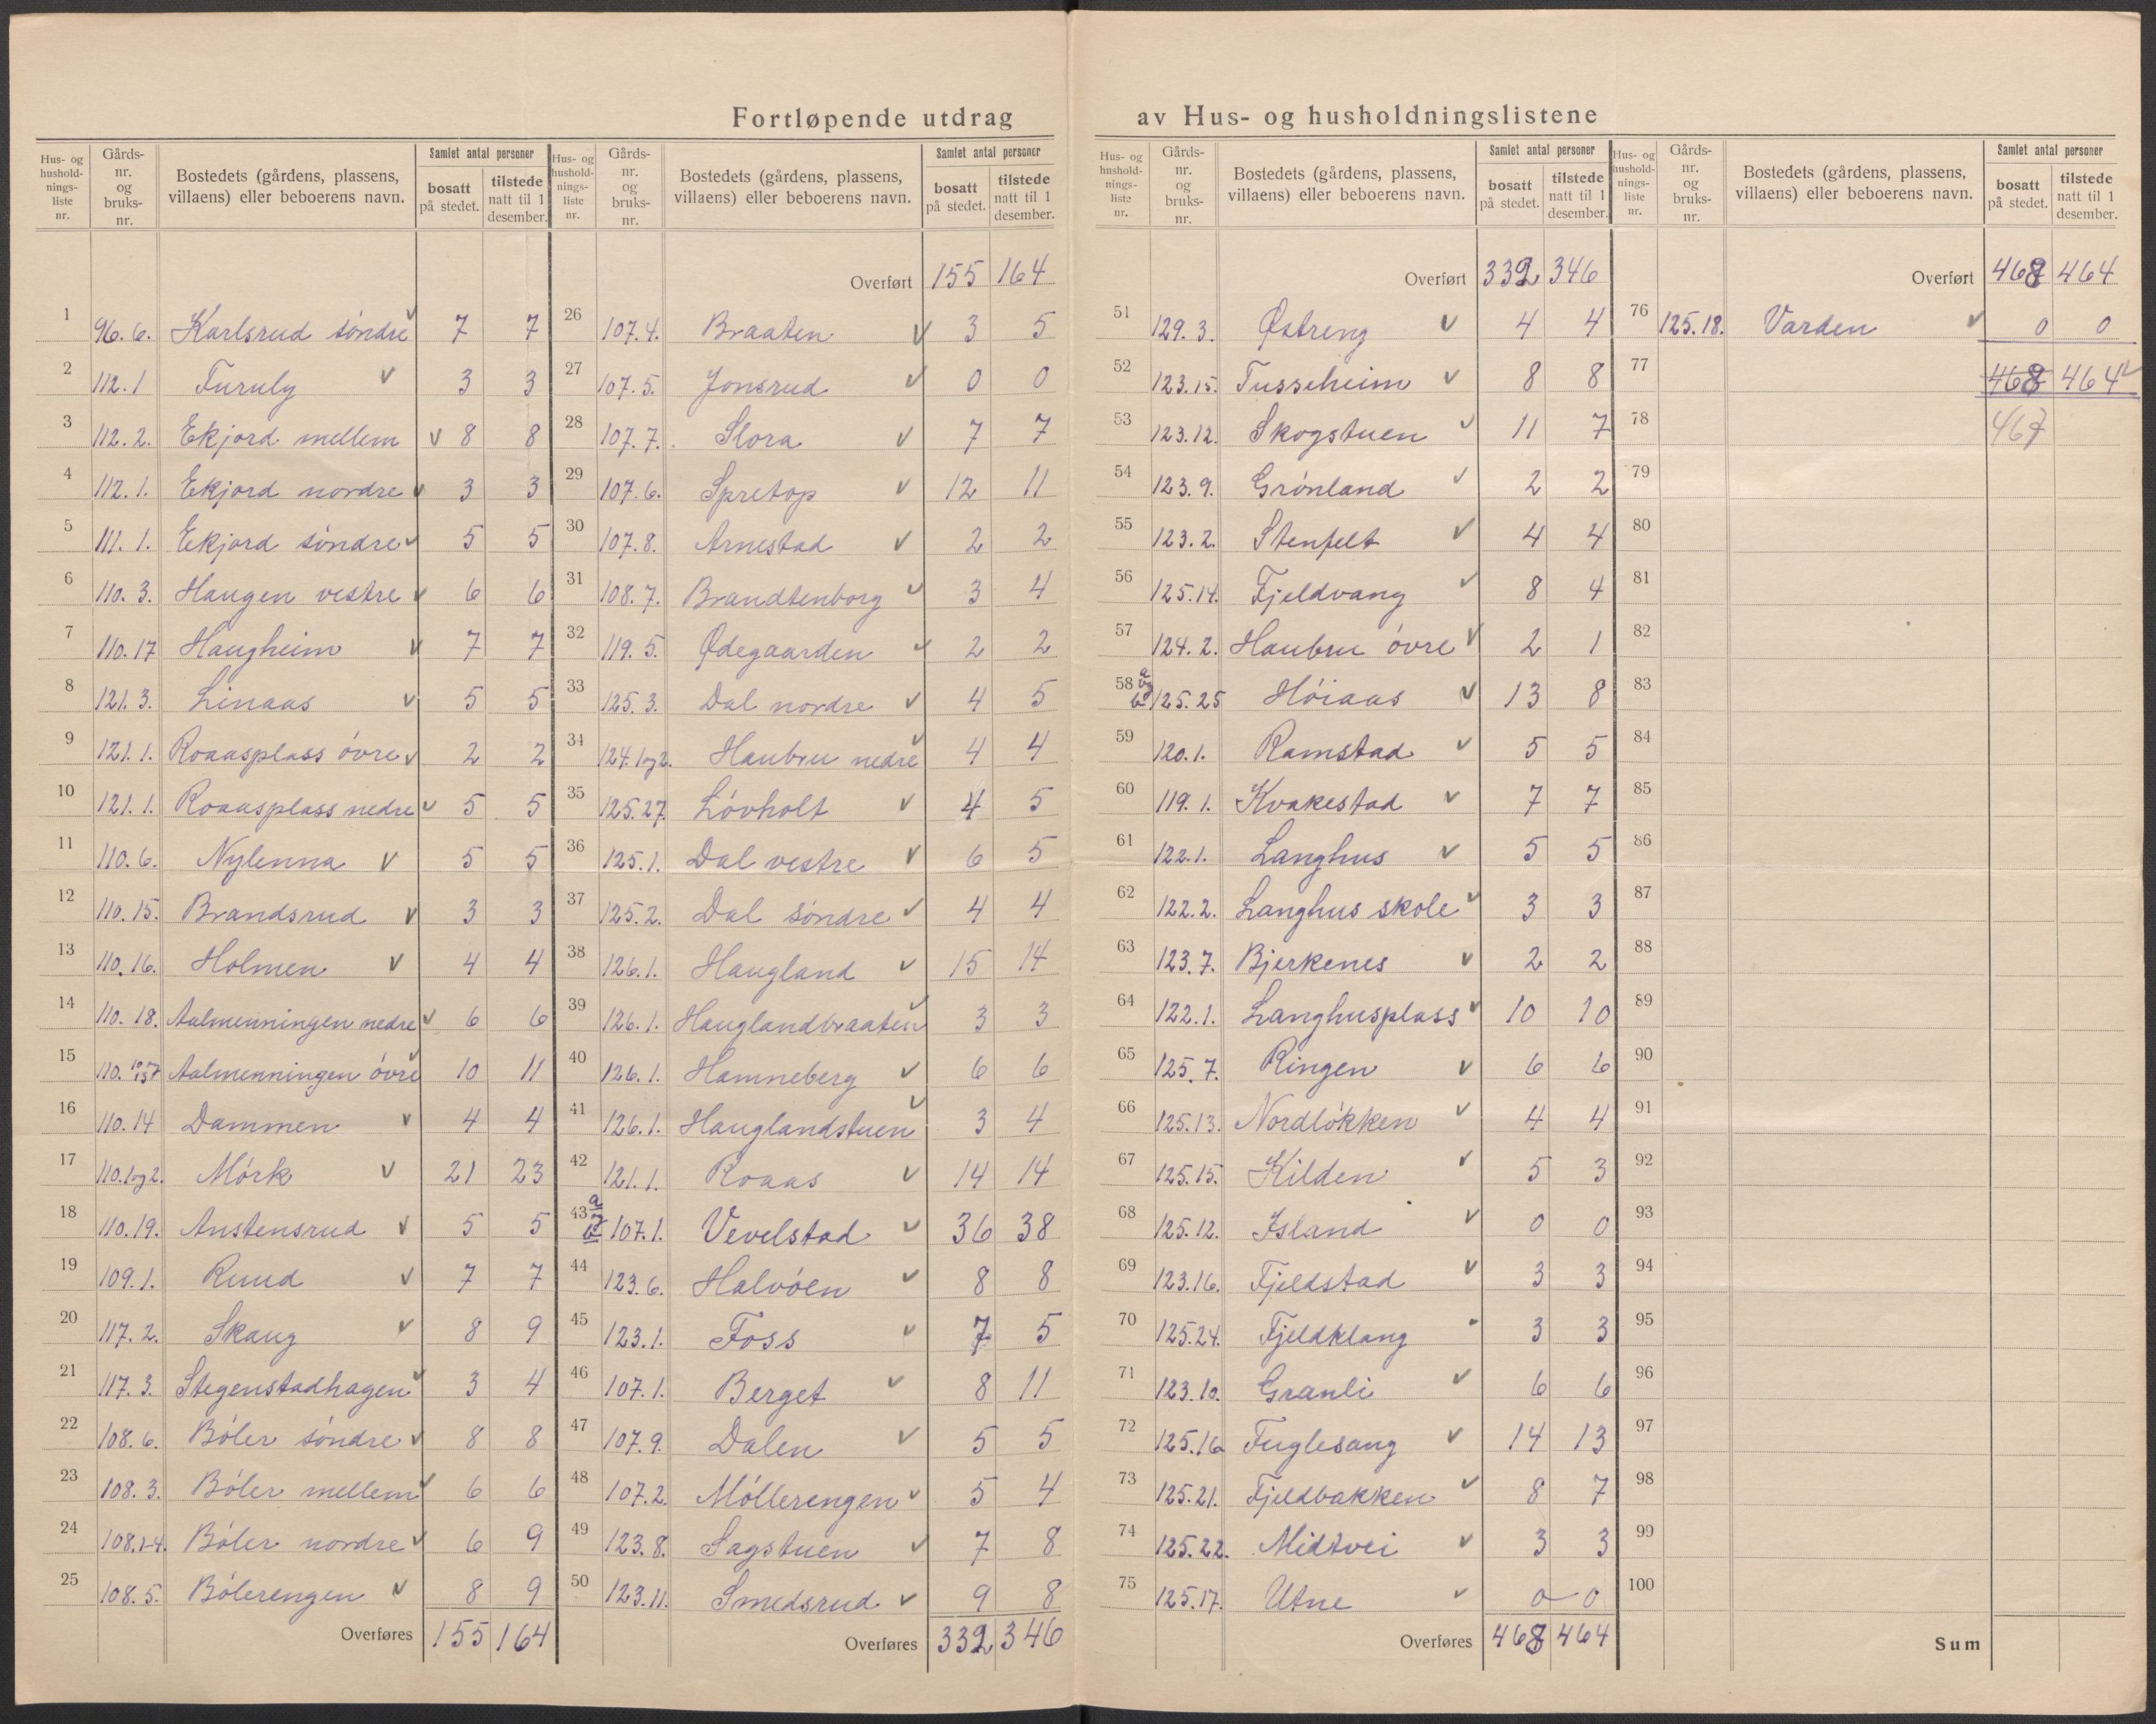 Fortløpende utdrag av Hus- og husholdningslistene
Hus- og husholdnings-liste nr. | Gårds-nr. og bruks-nr. | Bostedets (gårdens, plassens, villaens) eller beboerens navn. | Samlet antal personer | bosatt på stedet. | tilstede natt til 1 desember.
1 96.6. Karlsrud söndre 7 7
2 112.1 Furuly 3 3
3 112.2. Ekjord mellem 8 8
4 112.1. Ekjord nordre 3 3
5 111.1. Ekjord söndre 5 5
6 110.3. Haugen vestre 6 6
7 110.17 Haugheim 7 7
8 121.3. Linaas 5 5
9 121.1. Roaasplass övre 2 2
10 121.1. Roaasplass nedre 5 5
11 110.6. Nylenna 5 5
12 110.15. Brandsrud 3 3
13 110.16. Holmen 4 4
14 110.18. Aalmenningen nedre 6 6
15 110. Aalmenningen övre 10 11
16 110.14 Dammen 4 4
17 110.1og2. Mörk 21 23
18 110.19. Austensrud 5 5
19 109.1. Ruud 7 7
20 117.2. Skaug 8 9
21 117.3. Stegenstadhagen 3 4
22 108.6. Böler söndre 8 8
23 108.3. Böler mellem 6 6
24 108.1-4. Böler nordre 6 9
25 108.5. Bölerengen 8 9
Overføres 155 164
Hus- og husholdnings-liste nr. | Gårds-nr. og bruks-nr. | Bostedets (gårdens, plassens, villaens) eller beboerens navn. | Samlet antal personer | bosatt på stedet. | tilstede natt til 1 desember.
Overført 155 164
26 107.4. Braaten 3 5
27 107.5. Jonsrud 0 0
28 107.7. Slora 7 7
29 107.6. Spretop 12 11
30 107.8. Arnestad 2 2
31 108.7. Brandtenborg 3 4
32 119.5. Ødegaarden 2 2
33 125.3. Dal nordre 4 5
34 124.1og2. Haubru nedre 4 4
35 125.27. Lövholt 4 5
36 125.1. Dal vestre 6 5
37 125.2. Dal söndre 4 4
38 126.1. Haugland 15 14
39 126.1. Hauglandbraaten 3 3
40 126.1. Hamneberg 6 6
41 126.1. Hauglandstuen 3 4
42 121.1. Roaas 14 14
43 a og b 107.1. Vevelstad 36 38
44 123.6. Halvöen 8 8
45 123.1. Foss 7 5
46 107.1. Berget 8 11
47 107.9. Dalen 5 5
48 107.2. Möllerengen 5 4
49 123.8. Sagstuen 7 8
50 123.11. Smedsrud 9 8
Overføres 332 346
Hus- og husholdnings-liste nr. | Gårds-nr. og bruks-nr. | Bostedets (gårdens, plassens, villaens) eller beboerens navn. | Samlet antal personer | bosatt på stedet. | tilstede natt til 1 desember.
Overført 332 346
51 129.3. Østreng 4 4
52 123.15. Tusseheim 8 8
53 123.12. Skogstuen 11 7
54 123.9. Grönland 2 2
55 123.2. Stenfelt 4 4
56 125.14. Fjeldvang 8 4
57 124.2. Haubru övre 2 1
58 a og b 125.25 Höiaas 13 8
59 120.1. Ramstad 5 5
60 119.1. Kvakestad 7 7
61 122.1. Langhus 5 5
62 122.2. Langhus skole 3 3
63 123.7. Bjerkenes 2 2
64 122.1. Langhusplass 10 10
65 125.7. Ringen 6 6
66 125.13. Nordlökken 4 4
67 125.15. Kilden 5 3
68 125.12. Island 0 0
69 123.16. Fjeldstad 3 3
70 125.24. Fjeldklang 3 3
71 123.10. Granli 6 6
72 125.16 Fuglesang 14 13
73 125.21. Fjeldbakken 8 7
74 125.22. Midtvei 3 3
75 125.17. Utne 0 0
Overføres 468 464
Hus- og husholdnings-liste nr. | Gårds-nr. og bruks-nr. | Bostedets (gårdens, plassens, villaens) eller beboerens navn. | Samlet antal personer | bosatt på stedet. | tilstede natt til 1 desember.
Overført 468 464
76 125.18. Varden 0 0
77 468 464
78 467
79
80
81
82
83
84
85
86
87
88
89
90
91
92
93
94
95
96
97
98
99
100
Sum